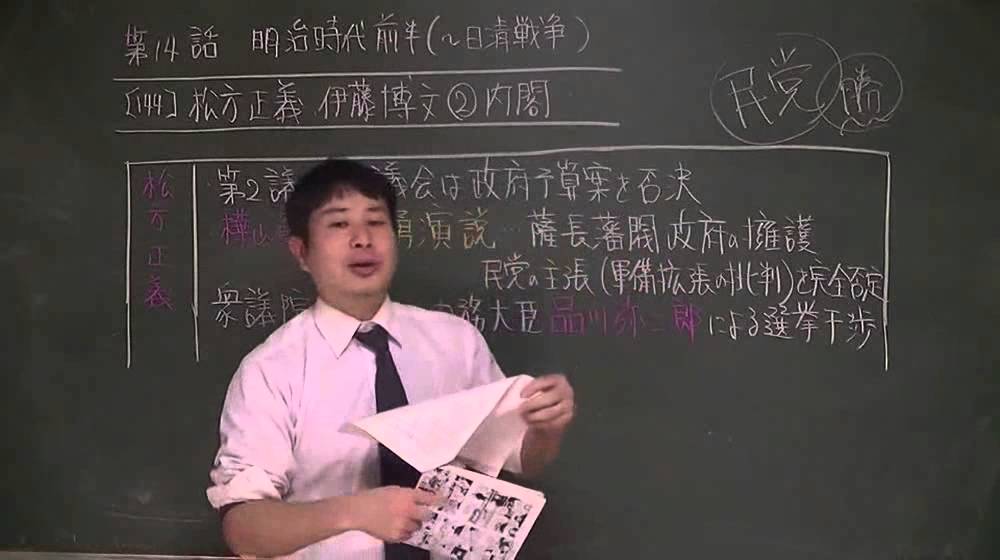 第14話 明治時代前半(〜日清戦争)
民党 勝
[144] 松方正義 伊藤博文②内閣
松方正義
第2議 議会は政府予算案を否決
樺山 勇演説…薩長藩閥政府の擁護
民党の主張(軍備拡張の批判)を完全否定
衆議院 内務大臣 品川弥二郎による選挙干渉